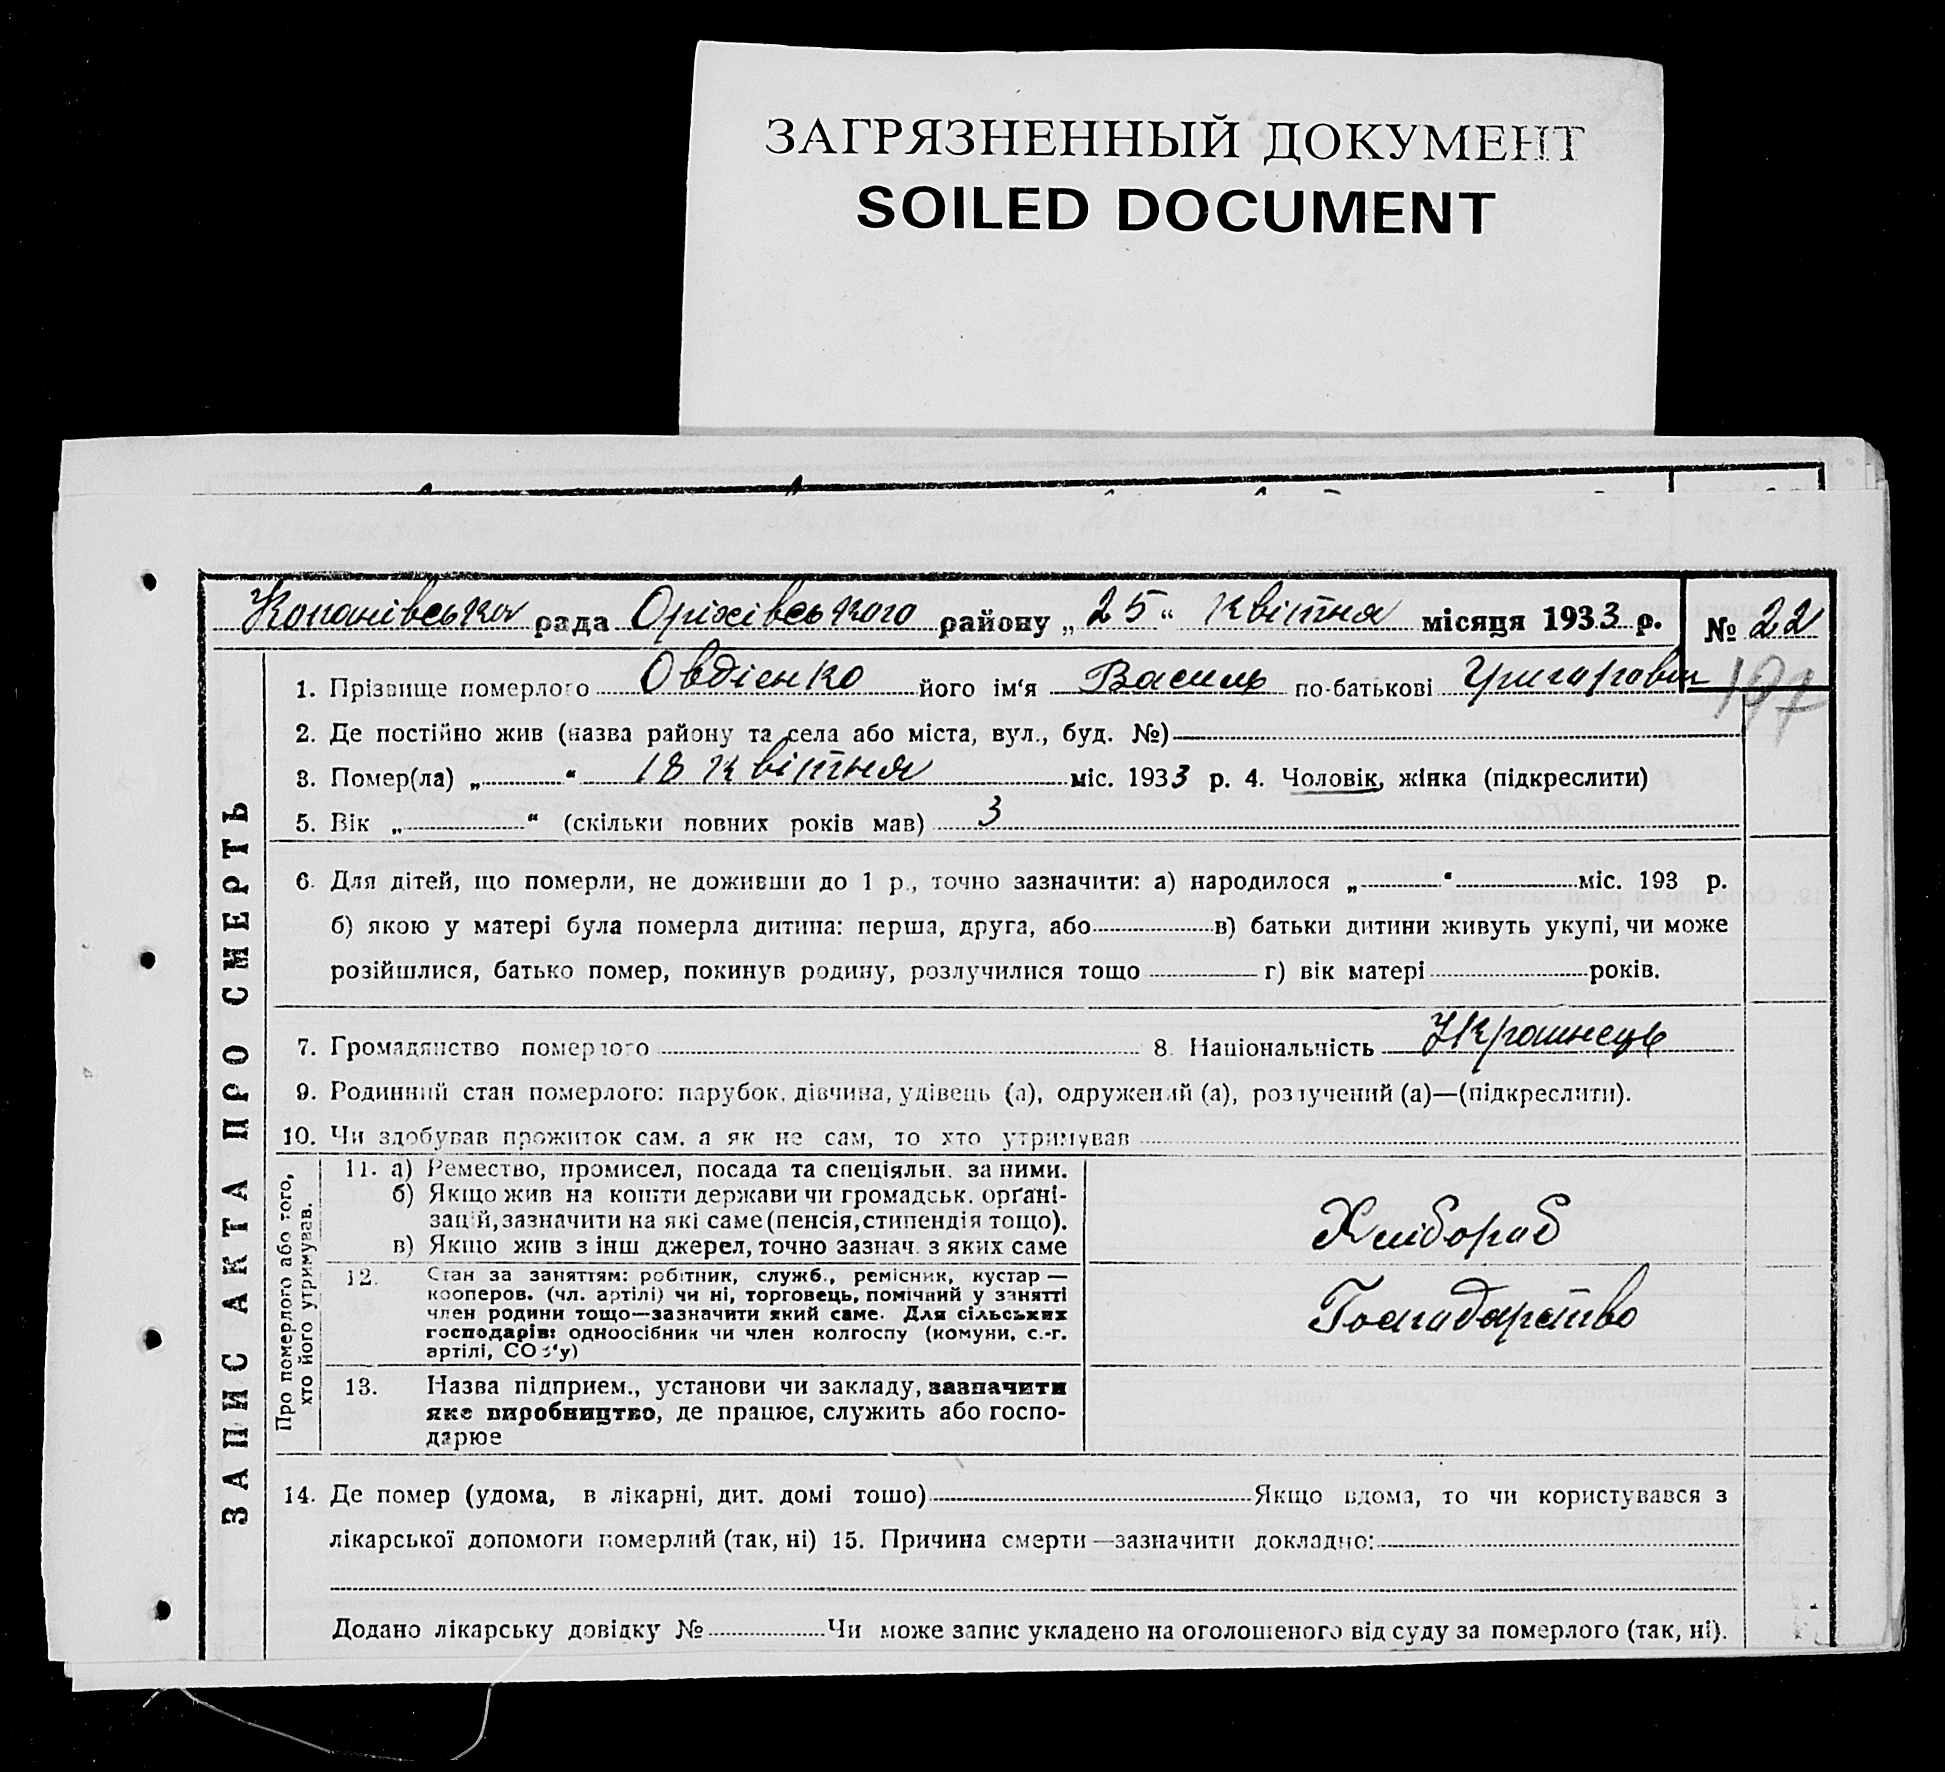 ЗАГРЯЗНЕННЫЙ ДОКУМЕНТ
SOILED DOCUMENT
Копанівська рада Оріхівського району „25“ Квітня місяця 1933 р. № 22
197
1. Прізвище померлого Овдієнко його ім‘я Василь по-батькові Григорович
2. Де постійно жив (назва району та села або міста, вул., буд. №)
3. Помер(ла) „ “ 18 квітня міс. 1933 р. 4. Чоловік, жінка (підкреслити)
5. Вік „ “ (скільки повних років мав) 3
6. Для дітей, що померли, не доживши до 1 р., точно зазначити: а) народилося „ “ міс. 193 р.
б) якою у матері була померла дитина: перша, друга, або в) батьки дитини живуть укупі, чи може
розійшлися, батько помер, покинув родину, розлучилися тощо г) вік матері років.
7. Громадянство померлого 8. Національність Українець
9. Родинний стан померлого: парубок, дівчина, удівець (а), одружений (а), розлучений (а)—(підкреслити).
10. Чи здобував прожиток сам, а як не сам, то хто утримував
ЗАПИС АКТА ПРО СМЕРТЬ
Про померлого або того,
хто його утримував.
11. а) Ремество, промисел, посада та спеціяльн. за ними.
б) Якщо жив на кошти держави чи громадськ. орґані-
зацій, зазначити на які саме (пенсія, стипендія тощо).
в) Якщо жив з інш джерел, точно зазнач. з яких саме
Хлібороб
12. Стан за заняттям: робітник, служб., ремісник, кустар —
кооперов. (чл. артілі) чи ні, торговець, помічний у занятті
член родини тощо—зазначити який саме. Для сільських
господарів: одноосібник чи член колгоспу (комуни, с.-г.
артілі, СОЗ‘у)
Господарство
13. Назва підприєм., установи чи закладу, зазначити
яке виробництво, де працює, служить або госпо-
дарює
14. Де помер (удома, в лікарні, дит. домі тощо) Якщо вдома, то чи користувався з
лікарської допомоги померлий (так, ні) 15. Причина смерти—зазначити докладно:
Додано лікарську довідку № Чи може запис укладено на оголошеного від суду за померлого (так, ні).